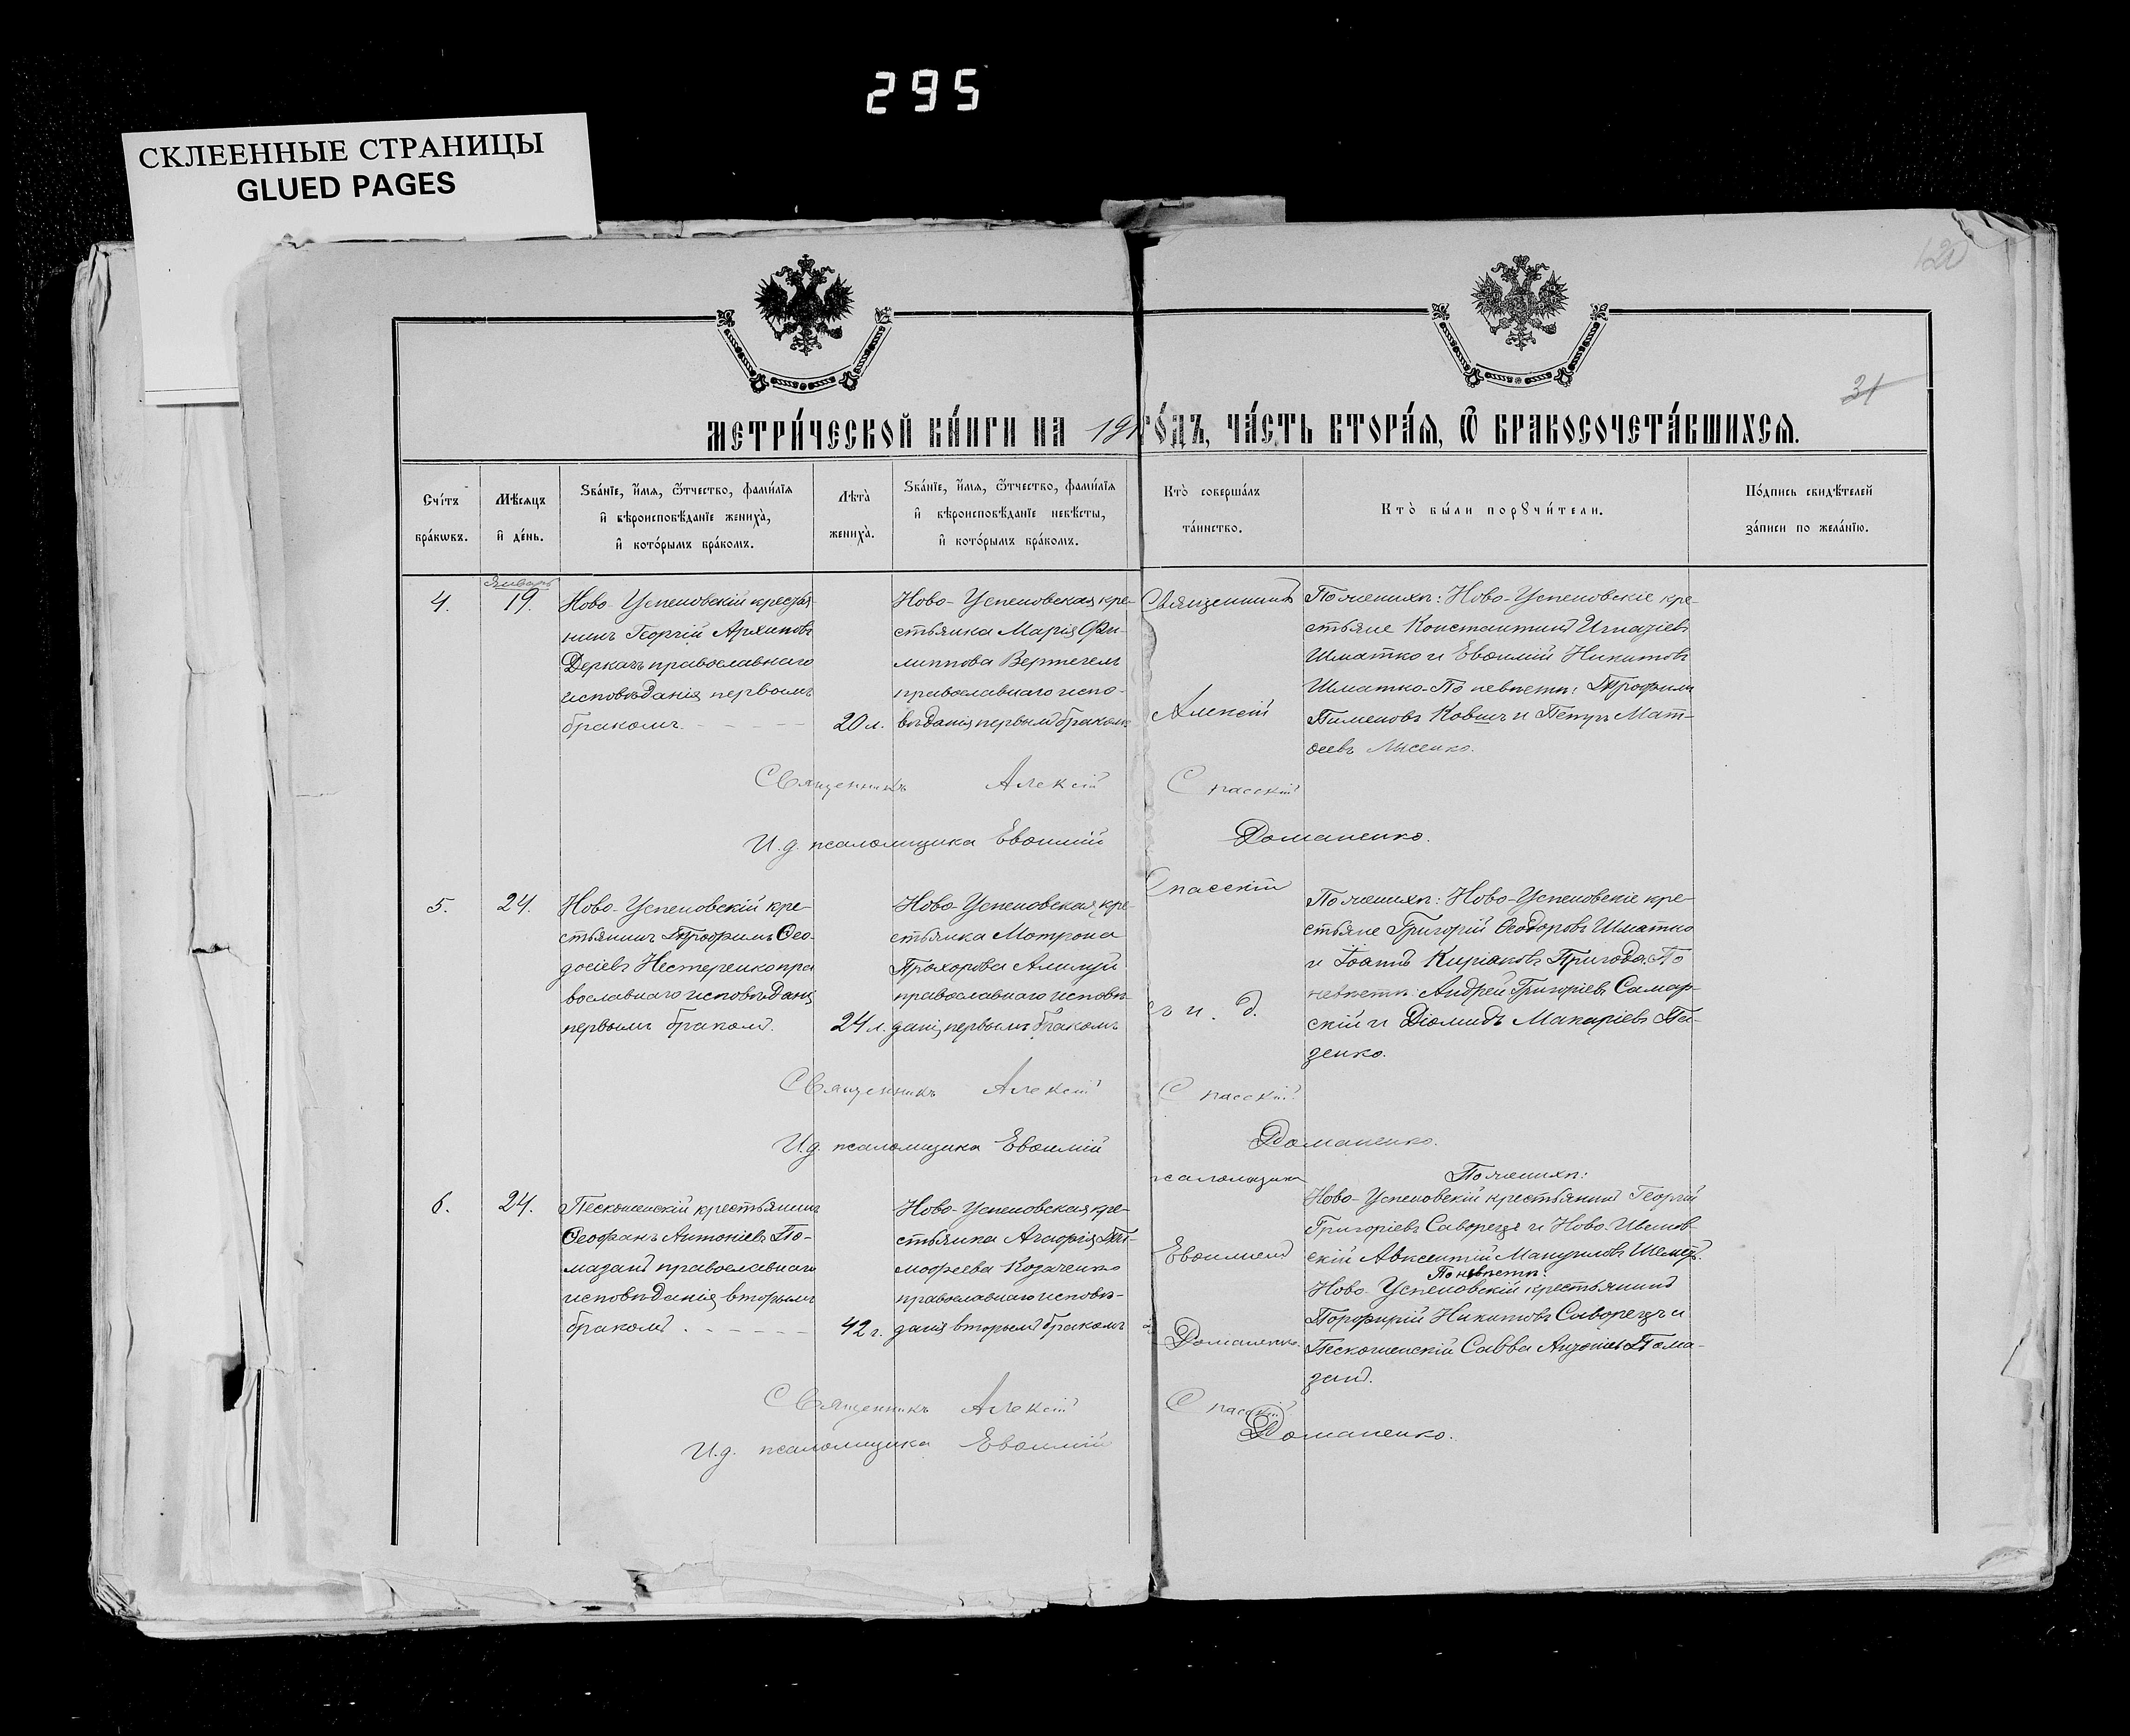 295
СКЛЕЕННЫЕ СТРАНИЦЫ
GLUED PAGES
120
31
МЕТРИ́ЧЕСКОЙ КНИ́ГИ НА 191 ГО́ДЪ, ЧА́СТЬ ВТОРА́Я, Ѿ БРАКОСОЧЕТА́ВШИХСЯ.
Сче́тъ бра́кωвъ.
Мѣ́сяцъ и҆ де́нь.
Ѕва́нїе, и҆́мя, ѻ҆́тчество, фами́лїя
и҆ вѣроисповѣ́данїе жениха̀,
и҆ кото́рымъ бра́комъ.
Лѣ́та̀ жениха̀.
Ѕва́нїе, и҆́мя, ѻ҆́тчество, фами́лїя
и҆ вѣроисповѣ́данїе невѣ́сты,
и҆ кото́рымъ бра́комъ.
Кто̀ соверша́лъ та́инство.
Кто̀ бы́ли порꙋчи́тели.
По́дпись свидѣ́телей
за́писи по жела́нїю.
Январь
4.
19.
Ново-Успеновскій крестья-
нинъ Георгій Архиповъ
Деркачъ православнаго
исповѣданія первымъ
бракомъ.
20 л.
Ново-Успеновская кре-
стьянка Марія Фи-
липпова Вертегелъ
православнаго испо-
вѣданія первымъ бракомъ
Священникъ
Алексій
По женихѣ: Ново-Успеновскіе кре-
стьяне Константинъ Игнатіевъ
Шматко и Евѳимій Никитовъ
Шматко. По невѣстѣ: Трофимъ
Пименовъ Ковшъ и Петръ Мат-
ѳеевъ Лисенко.
Священникъ Алексій Спасскій
И. д. псаломщика Евѳимій Доманенко.
5.
24.
Ново-Успеновскій кре-
стьянинъ Трофимъ Ѳео-
досіевъ Нестеренко пра
вославнаго исповѣданія
первымъ бракомъ.
24 л.
Ново-Успеновская кре-
стьянка Мотрона
Прохорова Алилуй
православнаго исповѣ-
данія первымъ бракомъ
Спасскій
съ и. д.
По женихѣ: Ново-Успеновскіе кре-
стьяне Григорій Ѳеодоровъ Шматко
и Іоаннъ Киріаковъ Пригода. По
невѣстѣ: Андрей Григоріевъ Самар-
скій и Діомидъ Макаріевъ Па-
зенко.
Священникъ Алексій Спасскій
И. д. псаломщика Евѳимій Доманенко.
6.
24.
Пескошенскій крестьянинъ
Ѳеофанъ Антоніевъ По-
мазанъ православнаго
исповѣданія вторымъ
бракомъ.
42 г.
Ново-Успеновская кре-
стьянка Агафія Ти-
мофеева Козаченко
православнаго исповѣ-
данія вторымъ бракомъ
псаломщика
Евѳиміемъ
Доманенко.
По женихѣ:
Ново-Успеновскій крестьянинъ Георгій
Григоріевъ Саворецъ и Ново-
скій Авксентій Мануиловъ
По невѣстѣ:
Ново-Успеновскій крестьянинъ
Порфирій Никитовъ Саворецъ и
Пескошенскій Савва Антоніевъ Пома-
занъ.
Священникъ Алексій Спасскій
И. д. псаломщика Евѳимій Доманенко.